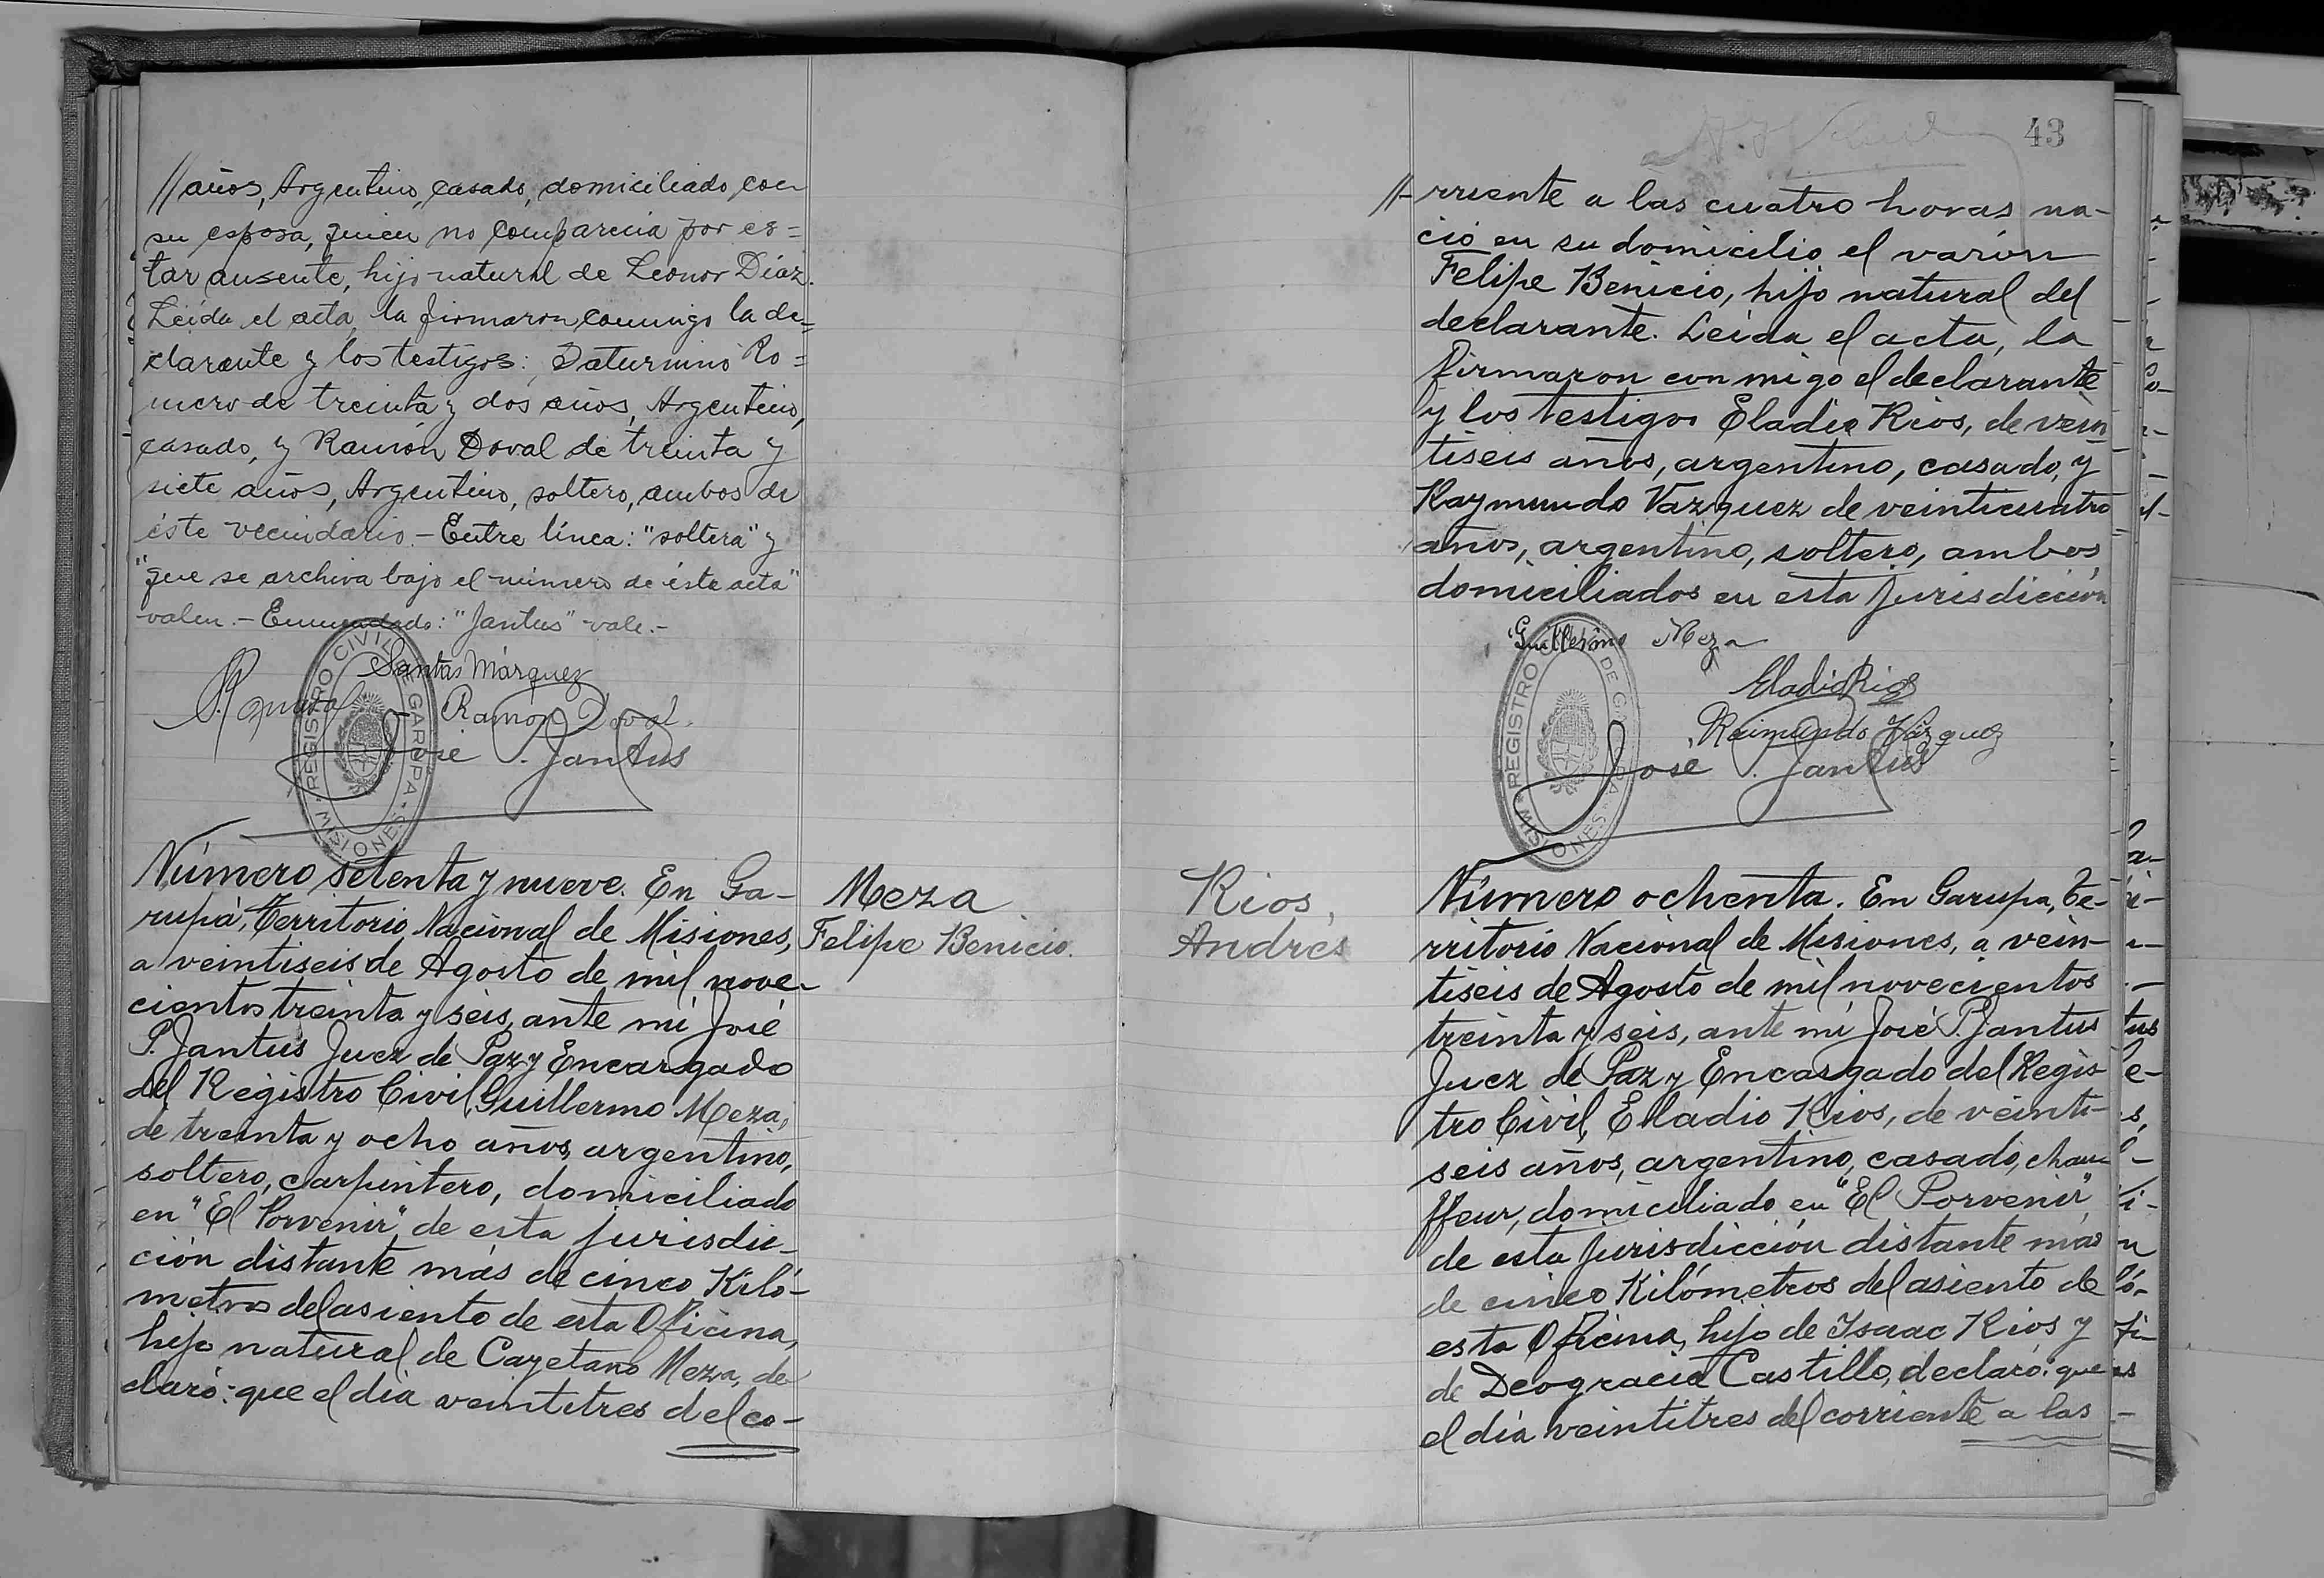 //años, Argentino, casado, domiciliado con
su esposa, quien no comparecia por es=
tar ausente, hijo natural de Leonor Díaz.
Leida el acta, la firmaron conmigo la de=
clarante y los testigos: Saturnino Ro=
mero de treinta y dos años, Argentino,
casado, y Ramón Doval de treinta y
siete años, Argentino, soltero, ambos de
éste vecindario.- Entre línea: "soltera" y
"que se archiva bajo el número de ésta acta"
valen.- Enmendado: "Jantus" vale.-
Santas Márquez
Ramon Doval
José P. Jantus
REGISTRO CIVIL DE GARUPA
MISIONES
Número setenta y nueve. En Ga-
rupá, Territorio Nacional de Misiones,
a veintiseis de Agosto de mil nove-
cientos treinta y seis, ante mí José
P. Jantus Juez de Paz y Encargado
del Registro Civil, Guillermo Meza,
de treinta y ocho años, argentino,
soltero, carpintero, domiciliado
en "El Porvenir", de esta jurisdic-
ción distante más de cinco Kiló-
metros del asiento de esta Oficina,
hijo natural de Cayetano Meza, de
claró: que el día veintitres del co-
Meza
Felipe Benicio.
43
//-rriente a las cuatro horas na-
ció en su domicilio el varón
Felipe Benicio, hijo natural del
declarante. Leida el acta, la
firmaron conmigo el declarante
y los testigos Eladio Rios, de vein
tiseis años, argentino, casado, y
Raymundo Vazquez de veinticuatro
años, argentino, soltero, ambos
domiciliados en esta Jurisdicción
Guillermo Meza
Eladio Rios
Raimundo Vázquez
José P. Jantus
REGISTRO CIVIL DE GARUPA
MISIONES
Rios,
Andrés
Número ochenta. En Garupa, Te-
rritorio Nacional de Misiones, a vein-
tiseis de Agosto de mil novecientos
treinta y seis, ante mí José P. Jantus
Juez de Paz y Encargado del Regis
tro Civil, Eladio Rios, de veinti-
seis años, argentino, casado, chau
ffeur, domiciliado en "El Porvenir",
de esta Jurisdicción distante más
de cinco Kilómetros del asiento de
esta Oficina, hijo de Isaac Rios y
de Deogracia Castillo, declaró: que
el día veintitres del corriente a las